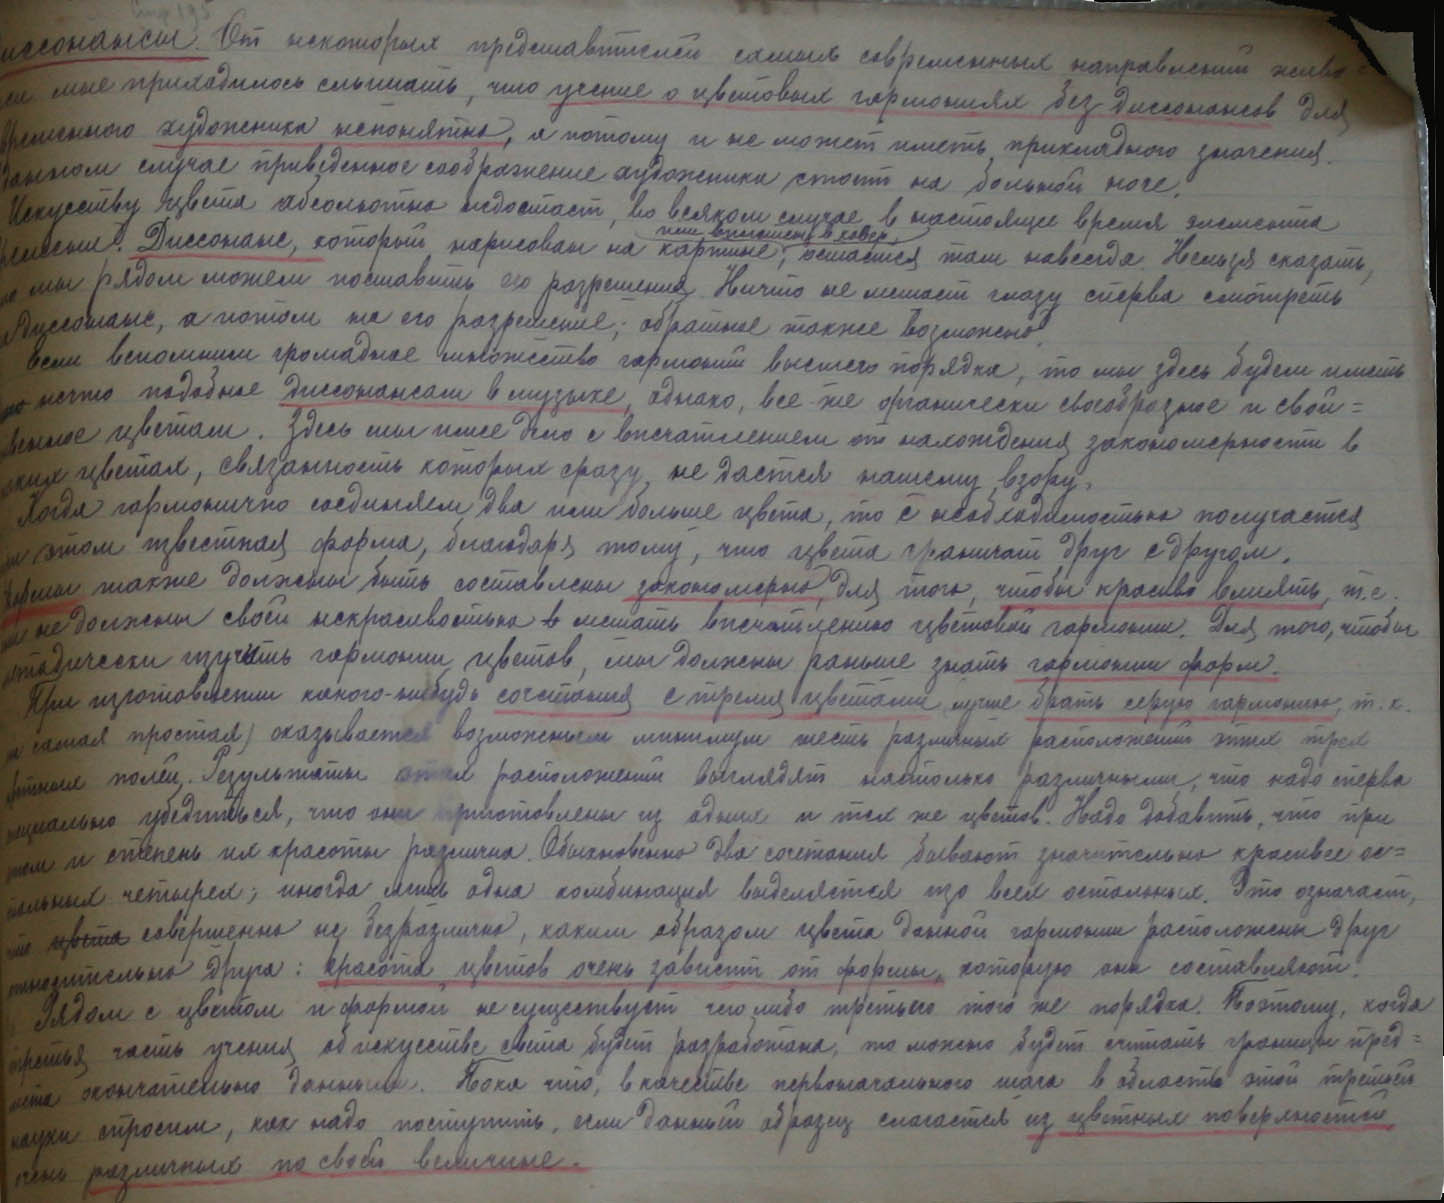 Стр 195
иссонансы. От некоторых представителей самых современных направлений живо=
си мне приходилось слышать, что учение о цветовых гармониях без диссонансов для
временного художника непонятно, а потому и не может иметь прикладного значения.
данном случае приведенное соображение художника стоит на больной ноге.
Искусству цвета абсолютно недостает, во всяком случае, в настоящее время элемента
ремени. Диссонанс, который нарисован на картине, остается там навсегда. Нельзя сказать,
или вплетен в ковер
мы рядом можем поставить его разрешения. Ничто не мешает глазу сперва смотреть
а диссонанс, а потом на его разрешение; обратное также возможно.
Если вспомним громадное множество гармоний высшего порядка, то мы здесь будем иметь
нечто подобное диссонансам в музыке, однако, все же органически своеобразное и свой=
венное цветам. Здесь мы имее дело с впечатлением от нахождения закономерности в
аких цветах, связанность которых сразу не дается нашему взору.
Когда гармонично соединяем два или больше цвета, то с необходимостью получается
и этом известная форма, благодаря тому, что цвета граничат друг с другом.
Формы также должны быть составлены закономерно, для того, чтобы красиво влиять, т.е.
не должны своей некрасивостью мешать впечатлению цветовой гармонии. Для того, чтобы
етодически изучить гармонии цветов, мы должны раньше знать гармонии форм.
При изготовлении какого-нибудь сочетания с тремя цветами (лучше брать серую гармонию, т.к.
самая простая) оказывается возможным минимум шесть различных расположений этих трех
ветных полей. Результаты этих расположений выглядят настолько различными, что надо сперва
пециально убедиться, что они приготовлены из одних и тех же цветов. Надо добавить, что при
том и степень их красоты различна. Обыкновенно два сочетания бывают значительно красивее ос=
тальных четырех; иногда лишь одна комбинация выделяется изо всех остальных. Это означает,
что цвета совершенно не безразлично, каким образом цвета данной гармонии расположены друг
относительно друга: красота цветов очень зависит от формы, которую они составляют.
Рядом с цветом и формой не существует чего либо третьего того же порядка. Поэтому, когда
третья часть учения об искусстве света будет разработана, то можно будет считать границы пред=
мета окончательно данными. Пока что, в качестве первоначального шага в область этой третьей
науки спросим, как надо поступить, если данный образец слагается из цветных поверхностей
очень различных по своей величине.